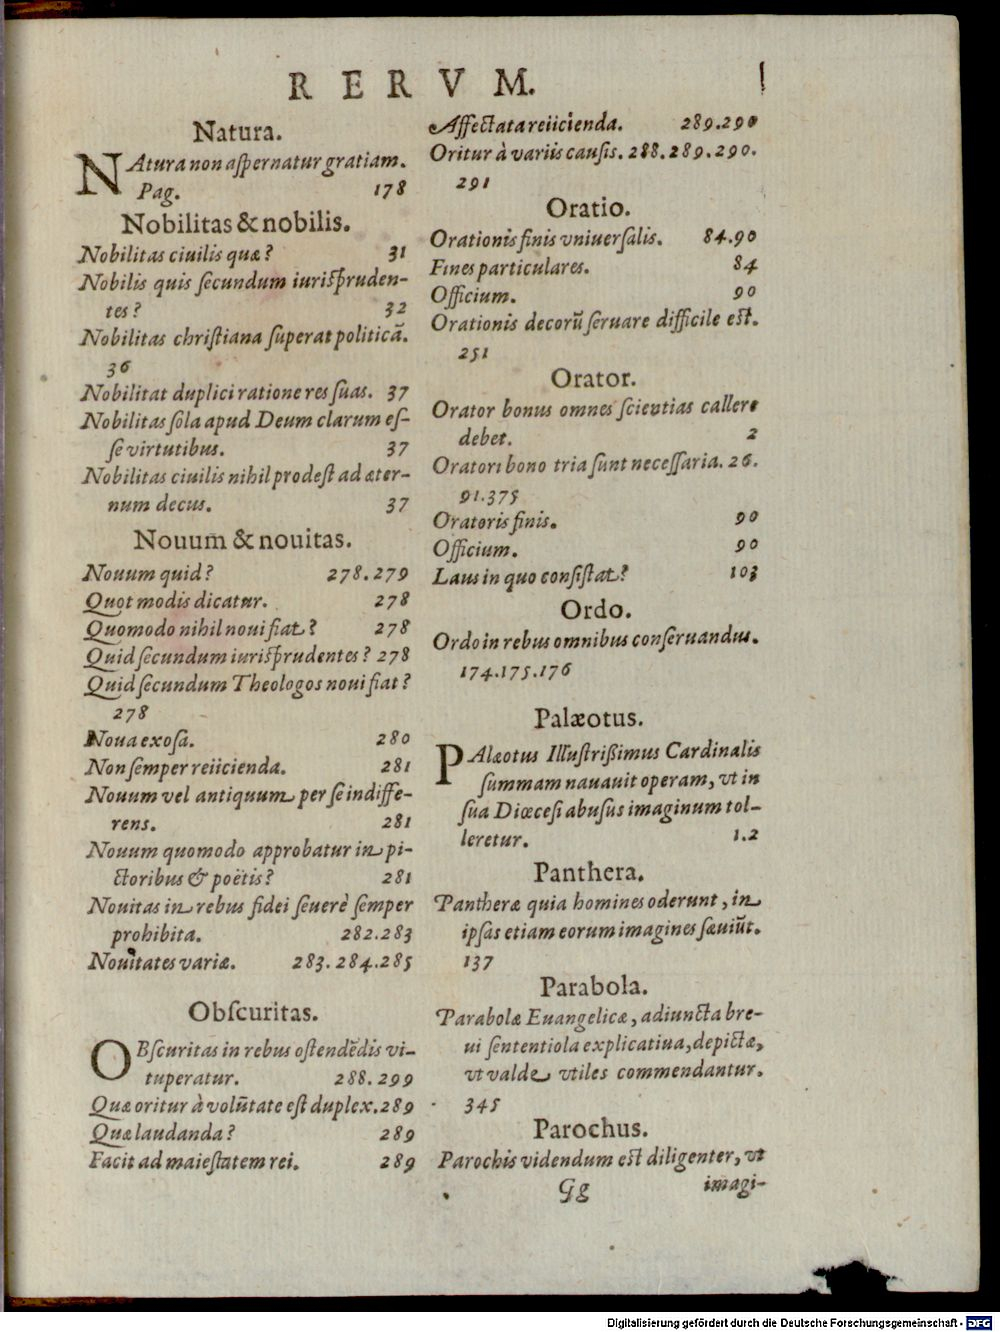 RERVM.
Natura.
NAtura non aſpernatur gratiam.
Pag. 178
Nobilitas & nobilis.
Nobilitas ciuilis quæ? 31
Nobilis quis ſecundum iuriſpruden-
tes? 32
Nobilitas chriſtiana ſuperat politicã.
36
Nobilitat duplici ratione res ſuas. 37
Nobilitas ſola apud Deum clarum eſ-
ſe virtutibus. 37
Nobilitas ciuilis nihil prodeſt ad æter-
num decus. 37
Nouum & nouitas.
Nouum quid? 278.279
Quot modis dicatur. 278
Quomodo nihil noui fiat? 278
Quid ſecundum iuriſprudentes? 278
Quid ſecundum Theologos noui fiat?
278
Noua exoſa. 280
Non ſemper reiicienda. 281
Nouum vel antiquum per ſe indiffe-
rens. 281
Nouum quomodo approbatur in pi-
ctoribus & poëtis? 281
Nouitas in rebus fidei ſeuerè ſemper
prohibita. 282.283
Nouitates variæ. 283.284.285
Obſcuritas.
OBſcuritas in rebus oſtendẽdis vi-
tuperatur. 288.299
Quæ oritur à volũtate eſt duplex. 289
Quæ laudanda? 289
Facit ad maieſtatem rei. 289
Affectata reiicienda. 289.290
Oritur à variis cauſis. 288.289.290.
291
Oratio.
Orationis finis vniuerſalis. 84.90
Fines particulares. 84
Officium. 90
Orationis decorũ ſeruare difficile eſt.
251
Orator.
Orator bonus omnes ſcientias callere
debet. 2
Oratori bono tria ſunt neceſſaria. 26.
91.375
Oratoris finis. 90
Officium. 90
Laus in quo conſiſtat? 103
Ordo.
Ordo in rebus omnibus conſeruandus.
174.175.176
Palæotus.
PAlæotus Illuſtriſsimus Cardinalis
ſummam nauauit operam, vt in
ſua Diœceſi abuſus imaginum tol-
leretur. 1.2
Panthera.
Pantheræ quia homines oderunt, in
ipſas etiam eorum imagines ſæuiũt.
137
Parabola.
Parabolæ Euangelicæ, adiuncta bre-
ui ſententiola explicatiua, depictæ,
vt valde vtiles commendantur.
345
Parochus.
Parochis videndum eſt diligenter, vt
Gg imagi-
Digitalisierung gefördert durch die Deutsche Forschungsgemeinschaft - DFG